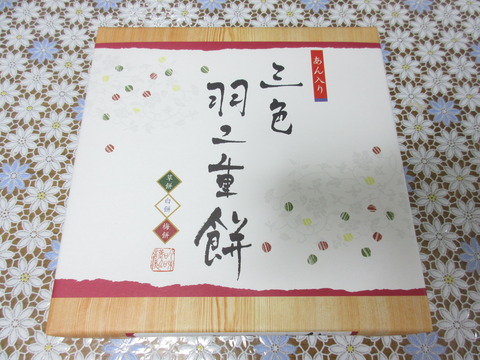 あん入り
三色
羽二重餅
草餅
白餅
梅餅